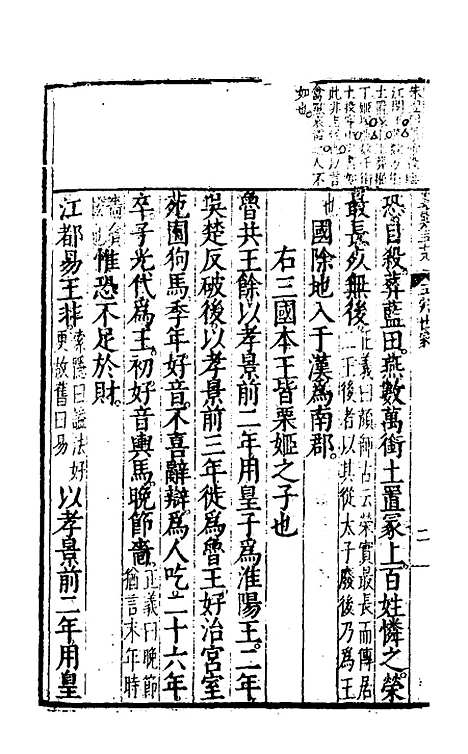 恐自殺葬藍田燕數萬銜土置冢上百姓憐之榮
最長死無後正義曰顔師古云榮實最長而傳居二王後者以其從太子廢後乃爲王也
國除地入于漢爲南郡
右三國本王皆栗姬之子也
魯共王餘以孝景前二年用皇子爲淮陽王二年
吳楚反破後以孝景前三年徙爲魯王好治宮室
苑囿狗馬季年好音不喜辭辯爲人吃二十六年
卒子光代爲王初好音輿馬晚節嗇正義曰晚節猶言末年時
嗇
惟恐不足於財
江都易王非索隱曰謚法好更故舊曰易以孝景前二年用皇
此非
人不
如也